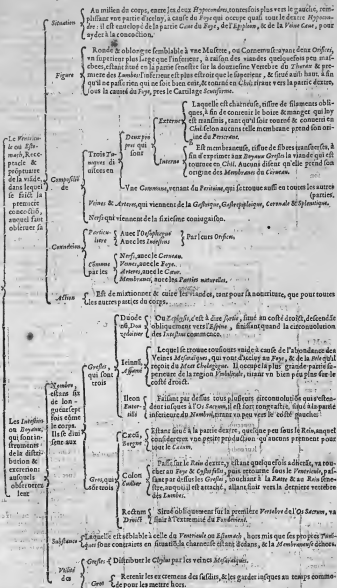 Au milieu du corps, entre les deux Hypocondres, toutesfois plus vers le gauche, rem-
plissant vne partie d'iceluy, à cause du Foye qui occupe quasi tout le dextre Hypocon-
dre : il est enuelopé de la partie Caue du Foye, de l'Epiploon, & de la Veine Caue, pour
ayder à la concoction.
Situation
Ronde & oblongue semblable à vne Musette, ou Cornemuse ayant deux Orifices,
vn superieur plus large que l'inferieur, à raison des viandes quelquefois peu mas-
chées, estant situé en la partie senestre sur la douziesme Vertebre du Thorax & pre-
miere des Lombes: l'inferieur est plus estroit que le superieur, & situé
qu'il ne passe rien qui ne soit bien cuit, & tourné en Chil: tirant vers la partie dextre,
sous la cauité du Foye, pres le Cartilage Scutiforme.
Figure
Le Ventricule
ou Esto-
mach, Rece-
ptacle &
de la viáde,
dans lequel
se faict la
premiere
concoctiõ,
auquel faut
obseruer sa
Composition
de
Trois Tu-
niques di-
uisees en
Deux pro-
pres qui
sont
Externe
Laquelle est charneuse, tissue de filamens obli-
ques, à fin de contenir le boire & manger qui luy
est transmis, tant qu'il soit tourné & conuerti en
Chil: selon aucuns telle membrane prend son ori-
gine du Peritoine.
Interne
Est membraneuse, tissue de fibres transuerses, à
fin d'exprimer aux Boyaux Gresles la viande qui est
tournee en Chil. Aucuns disent qu'elle prend son
origine des Membranes du Cerueau.
Vne Commune, venant du Peritoine, qui se trouue aussi en toutes les autres
parties.
Veines & Arteres, qui viennent de la Gastrique, Gastrepiploique, Coronale & Splenitique.
Nerfs qui viennent de la sixiesme coniugaison.
Connexion
Particu-
liere
Auec l'Oesophague
Auec les Intestins
Par leurs Orifices.
Commune
par les
Nerfs, auec le Cerueau.
Veines, auec le Foye.
Arteres, auec le Cœur.
Membranes, auec les Parties naturelles.
Action
Est de mixtionner & cuire les viandes, tant pour sa nourriture, que pour toutes
les autres parties du corps.
Les Intestins
ou Boyaux,
qui sont in-
strumens
de la distri-
bution &
excretion:
ausquels
obseruerez
leur
Nombre,
estans six
de lon-
gueur sept
fois cõme
le corps.
Ils se diui-
sent aux
Gresles,
qui sont
trois
Duode-
nũ, Dou-
zedoitier
Ou Ecphysis, c'est à dire Sortie, situé au costé droict, descendẽ
obliquement vers l'Espine, finissant quand la circonuolution
des Intestins commence.
Ieinnũ,
Affamé
Lequel se trouue tousiours vuide à cause de l'abondance des
Veines Mesaraiques, qui vont d'iceluy au Foye, & de la Bile qu'il
reçoit du Meat Cholagogue. Il occupe la plus grande partie su-
perieure de la region Vmbilicale, tirant vn bien peu plus sur le
costé droict.
Ileon
Faisant par dessus tous plusieurs circonuolutiõs qui s'esten-
dent iusques à l'Os Sacrum, il est fort rougeastre, situé à la partie
inferieure du Nombril, tirant vn peu vers le costé gauche.
Gros, qui
sõt trois
Cæcũ,
Borgne
Estant situé à la partie dextre, quelque peu sous le Rein, auquel
considererez vne petite production qu'aucuns prennent pour
tout le Cæcum.
Colon
Passe sur le Rein dextre, y estant quelquefois adherẽt, va tou-
cher au Foye & Cystefellis, puis retourne sous le Ventricule, pas-
sant par dessus les Gresles, touchant à la Ratte & au Rein sene-
stre, auquel il est attaché, allant finir vers la derniere vertebre
des Lombes.
Rectum
Droict
Situé obliquement sur la premiere Vertebre de l'Os Sacrum, va
finir à l'extremité du Fondement.
Substance
Laquelle est semblable à celle du Ventricule ou Estomach, hors mis que ses propres Tuni-
ques sont contraires en situatiõ, la charneuse estant dedans, & la Membraneuse dehors.
Vtilité
des
Gresles
Distribuer le Chylus par les veines Mesaraiques.
Gros
Retenir les excremens des susdits, & les garder iusques au temps commo-
de pour les mettre hors.